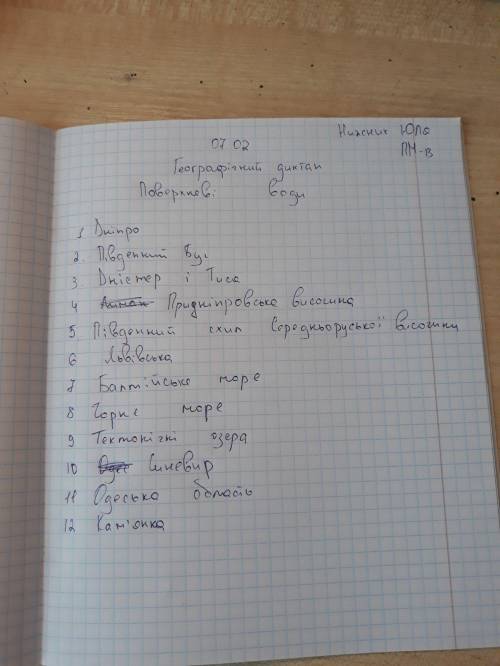 07 02
Нижник Юля
ПМ-в
Географічний диктан
Поверхневі води
1 Дніпро
2. Південний Буг
3 Дністер і Тиса
4 Придніпровська височина
5 Південний схил Середньоруської височини
6 Львівська
7 Балтійське море
8 Чорне море
9 Тектонічні озера
10 Синевир
11 Одеська область
12 Кам'янка